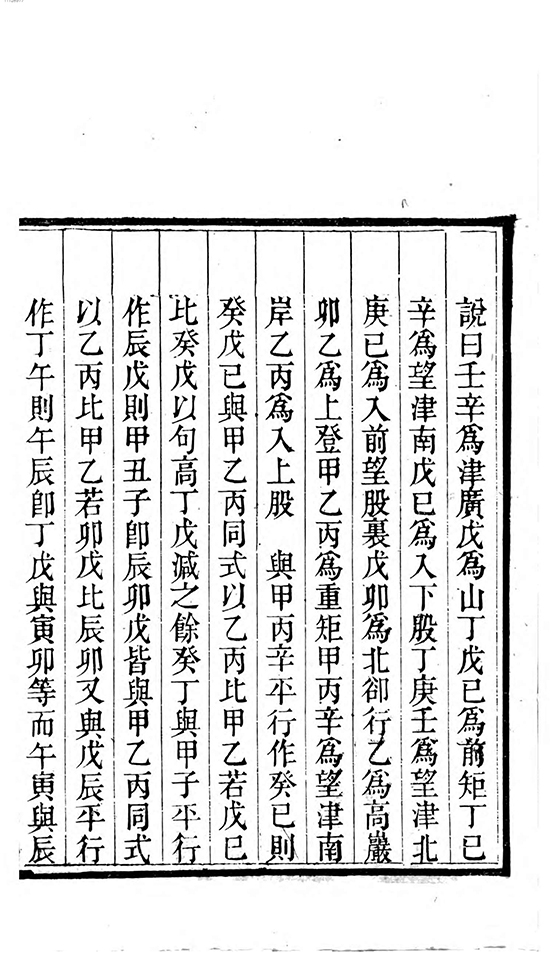 說曰壬辛爲津廣戊爲山丁戊已爲前矩丁已
辛爲望津南戊已爲入下股丁庚壬爲望津北
庚已爲入前望股裏戊卯爲北卻行乙爲高巖
卯乙爲上登甲乙丙爲重矩甲丙辛爲望津南
岸乙丙爲入上股　與甲丙辛平行作癸已則
癸戊已與甲乙丙同式以乙丙比甲乙若戊已
比癸戊以句高丁戊減之餘癸丁與甲子平行
作辰戊則甲丑子卽辰卯戊皆與甲乙丙同式
以乙丙比甲乙若卯戊比辰卯又與戊辰平行
作丁午則午辰卽丁戊與寅卯等而午寅與辰